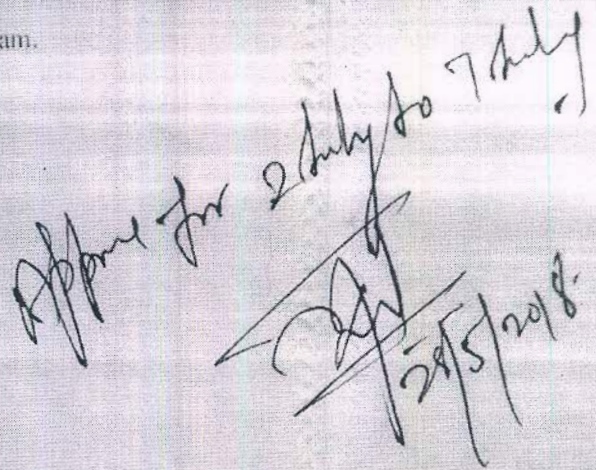 am.
Approve for 2 July to 7 July
28/5/2018